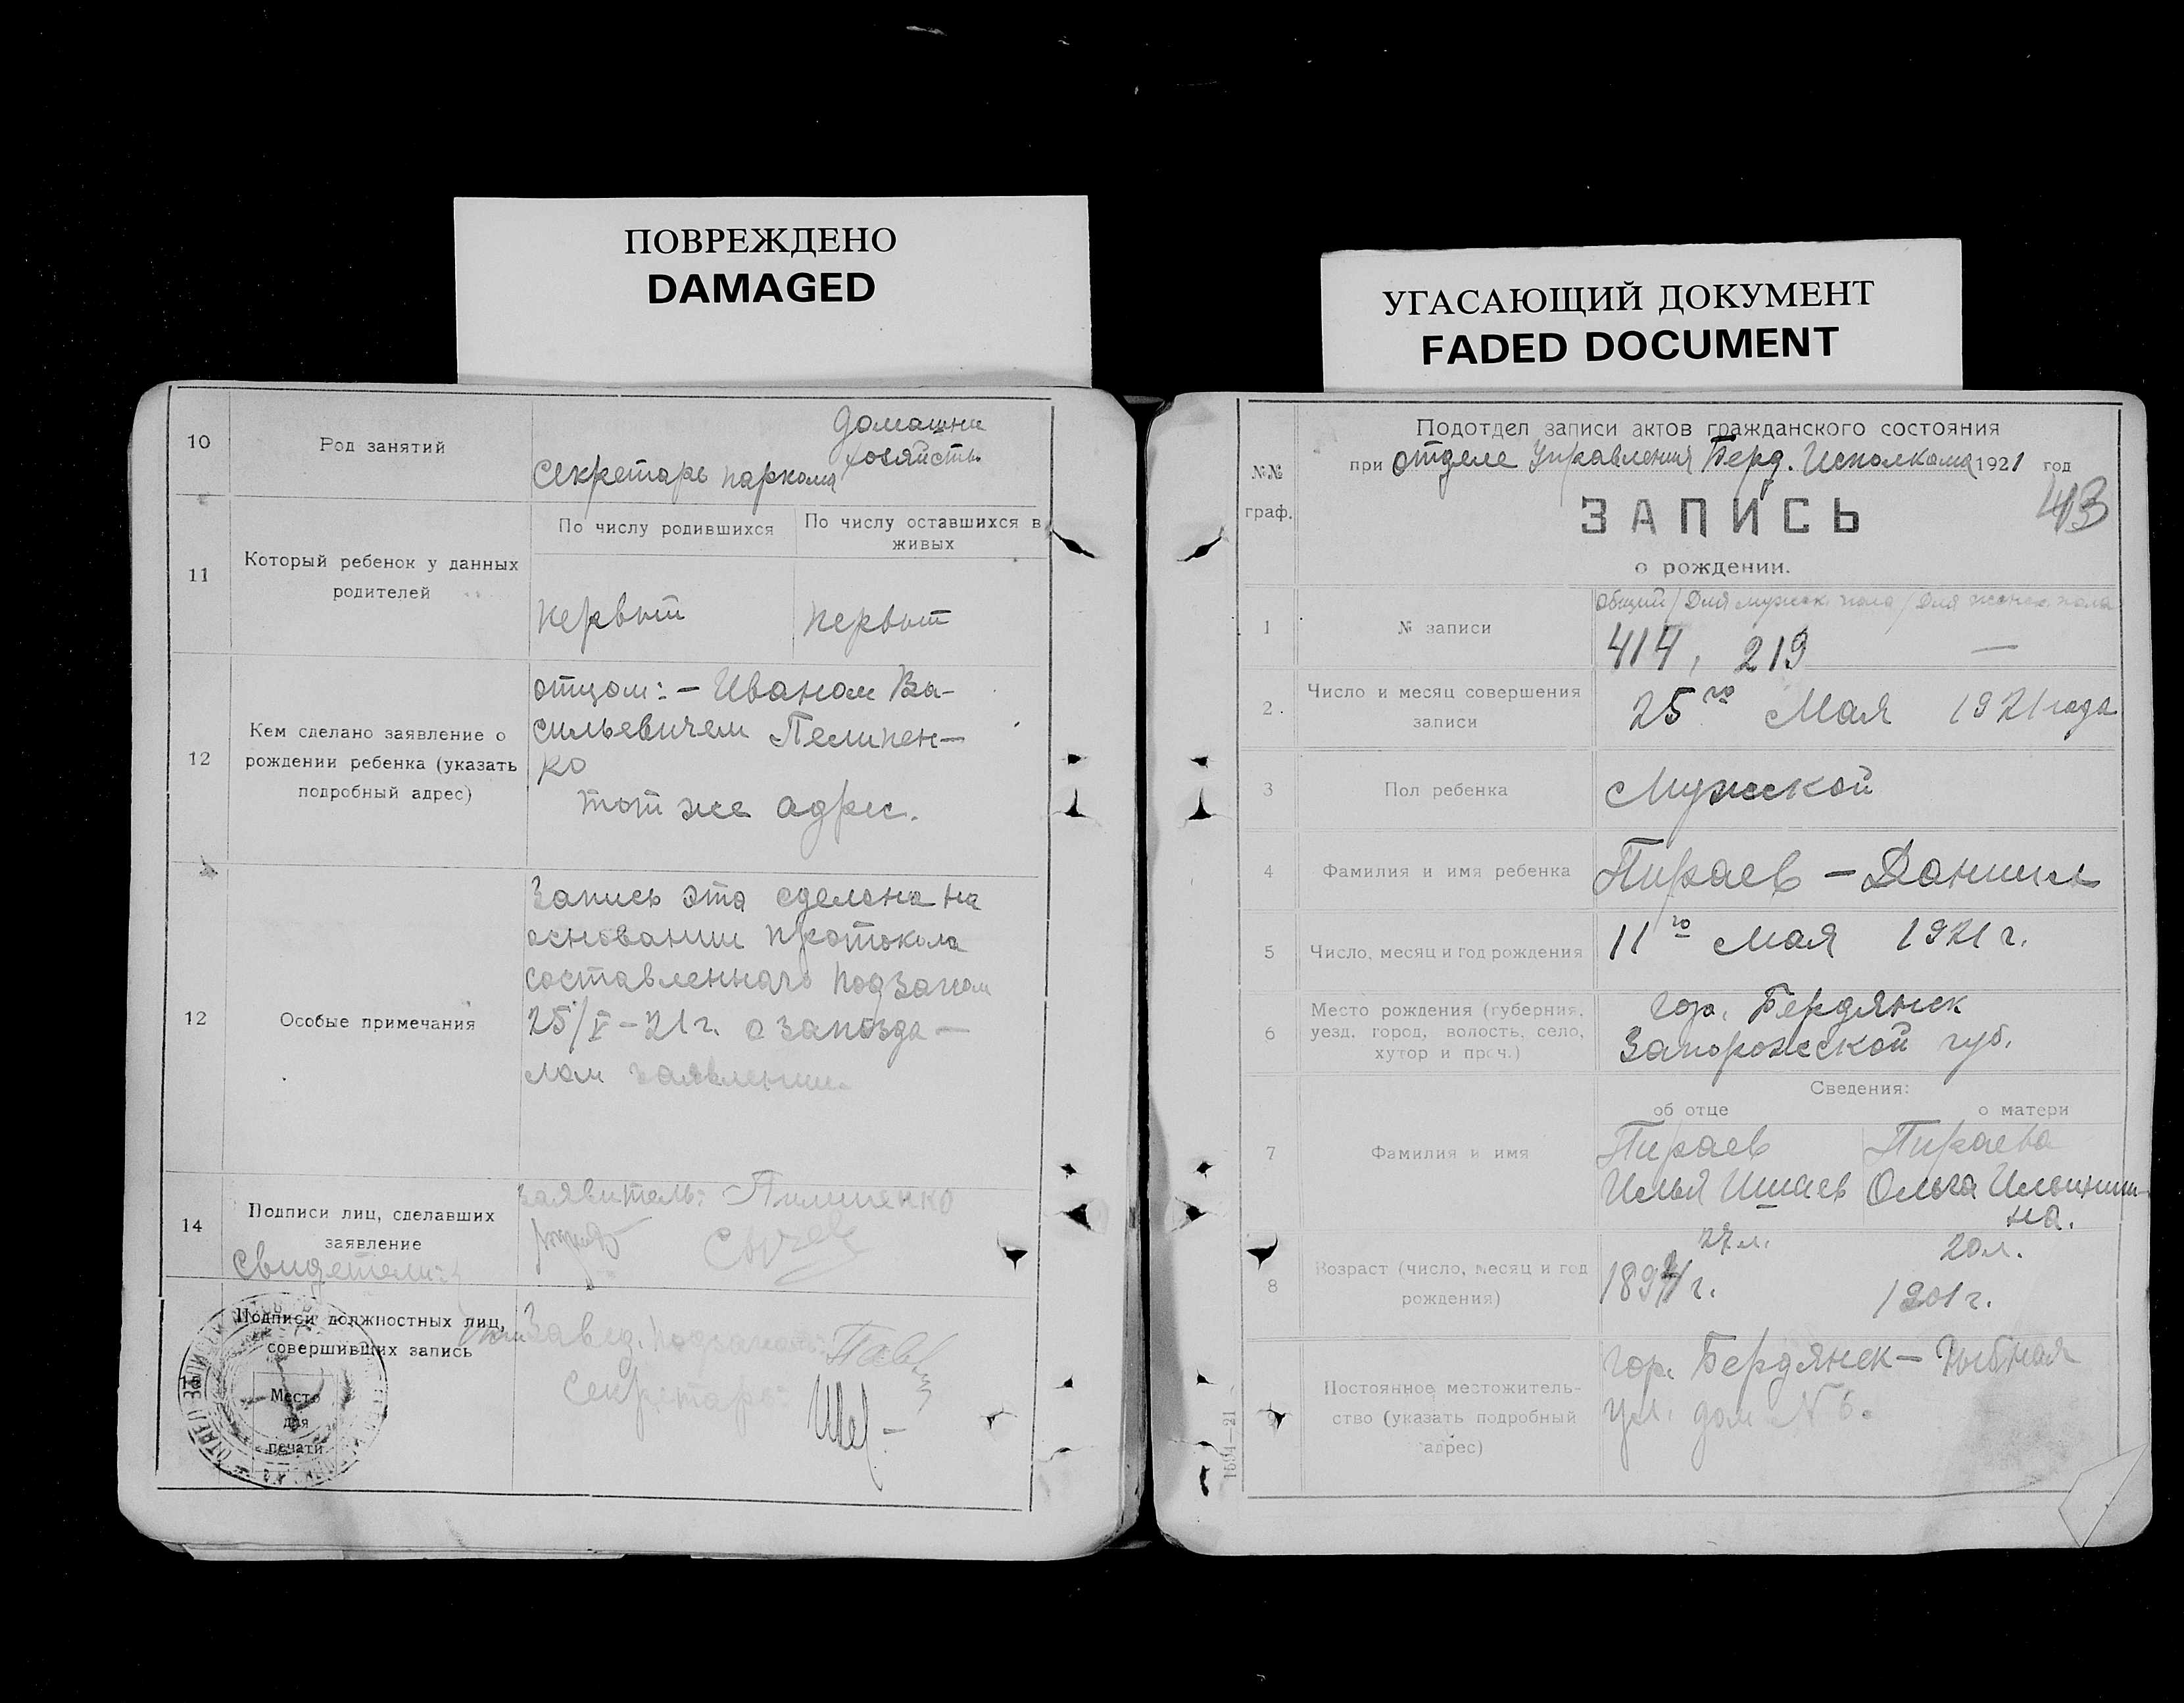 ПОВРЕЖДЕНО
DAMAGED
УГАСАЮЩИЙ ДОКУМЕНТ
FADED DOCUMENT
10
Род занятий
Секретарь паркома
домашн
хозяйств.
11
Который ребенок у данных
родителей
По числу родившихся
По числу оставшихся в
живых
первый
первый
12
Кем сделано заявление о
рождении ребенка (указать
подробный адрес)
отцом: – Иваном Ва-
сильевичем Пелипен-
ко
тот же адрес.
12
Особые примечания
Запись эта сделана на
основании протокола
составленнаго подзагсом
25/V – 21 г. о запозда-
лом заявлении.
14
Подписи лиц, сделавших
заявление
Свидетели:
заявитель: Пилипенко
Подписи должностных лиц,
совершивших запись
Место
для
печати
Завед. подзагсом:
Секретарь:
№№
граф.
Подотдел записи актов гражданского состояния
при отделе Управления Берд. Исполкома 1921 год
413
ЗАПИСЬ
о рождении.
1
№ записи
Общий / Для мужск. пола / Для женск. пола
414, 219 —
2.
Число и месяц совершения
записи
25го Мая 1921 года
3
Пол ребенка
Мужской
4
Фамилия и имя ребенка
Пираев – Даниил
5
Число, месяц и год рождения
11го Мая 1921 г.
6
Место рождения (губерния,
уезд, город, волость, село,
хутор и проч.)
гор. Бердянск
Запорожской губ.
Сведения:
об отце
о матери
7
Фамилия и имя
Пираев
Илья Ишаев
Пираева
Ольга Ильинин-
на.
8
Возраст (число, месяц и год
рождения)
27 л.
1894 г.
20 л.
1901 г.
9
Постоянное местожитель-
ство (указать подробный
адрес)
гор. Бердянск – Рыбная
ул. дом № 6.
1594—21